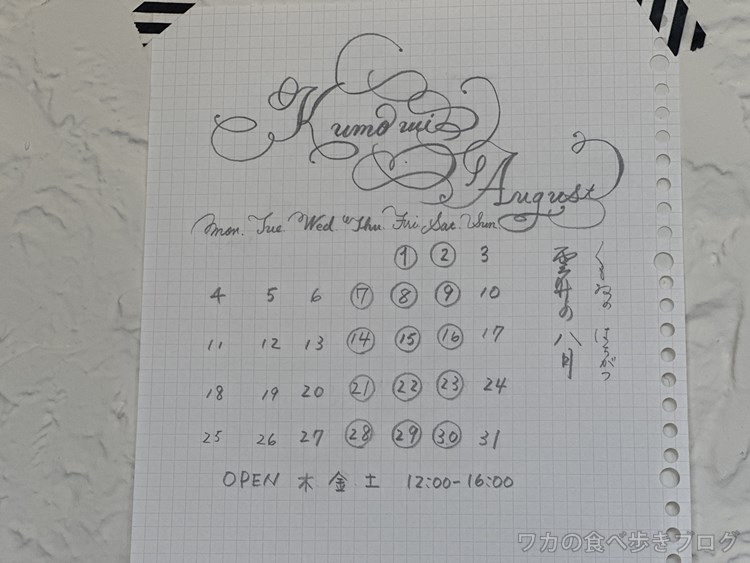 Kumowi's
August
Mon. Tue. Wed. Thu. Fri. Sat. Sun.
1 2 3
4 5 6 7 8 9 10
11 12 13 14 15 16 17
18 19 20 21 22 23 24
25 26 27 28 29 30 31
OPEN 木 金 土 12:00-16:00
雲井の 八月
くもゐの はちがつ
ワカの食べ歩きブログ